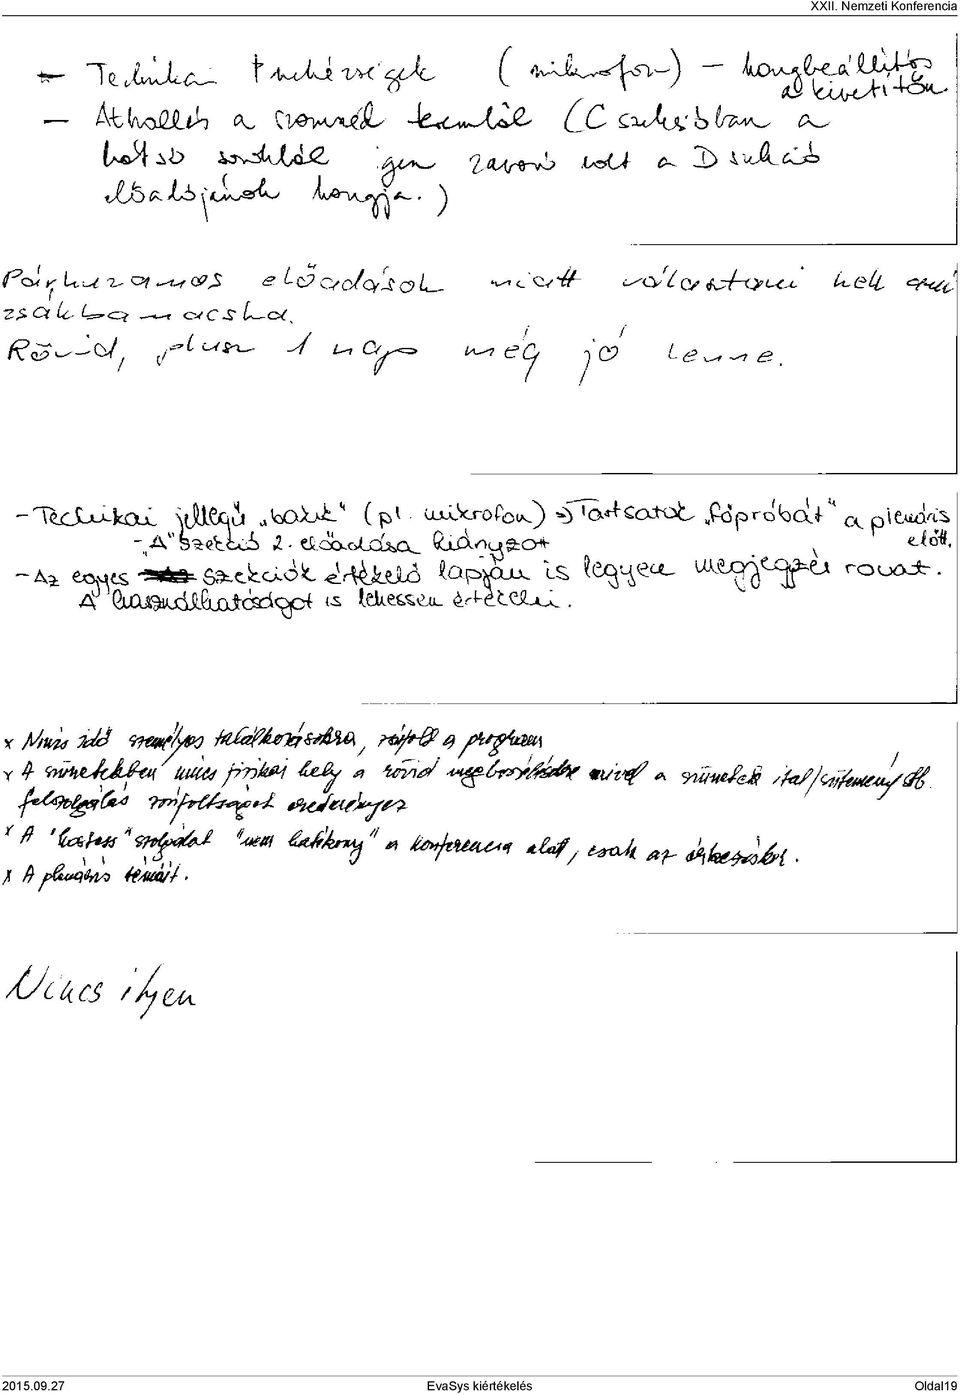 XXII. Nemzeti Konferencia
- Technikai nehézségek (mikrofon) - hangbeállítás
a kivetítőn.
- Áthallás a szomszéd teremből (C szekcióban a
hátsó soroktól igen zavaró volt a D szekció
előadójának hangja.)
Párhuzamos előadások miatt választani kell ami
zsákbamacska.
Rövid, plusz 1 nap még jó lenne.
- Technikai jellegű „bakik" (pl. mikrofon) => Tartsatok „főpróbát" a plenáris
előtt.
- „A" Szekció 2. előadása hiányzott
- Az egyes szekciók értékelő lapján is legyen megjegyzés rovat.
A használhatóságot is lehessen értékelni.
x Nincs idő személyes találkozásokra, zsúfolt a program
x A szünetekben nincs fizikai hely a rövid megbeszélésekre mivel a szünetek ital/sütemény stb.
felszolgálás zsúfoltságot eredményez
x A "hostess" szolgálat "nem hatékony" a konferencia alatt, csak az érkezéskor.
x A plenáris témáit.
Nincs ilyen
2015.09.27 EvaSys kiértékelés Oldal19